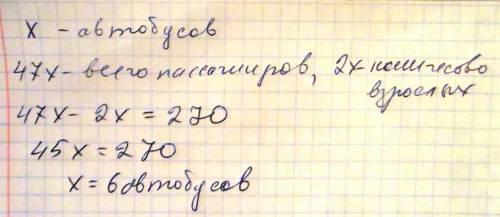 x - автобусов
47x - всего пассажиров, 2x количество
взрослых
47x - 2x = 270
45x = 270
x = 6 автобусов